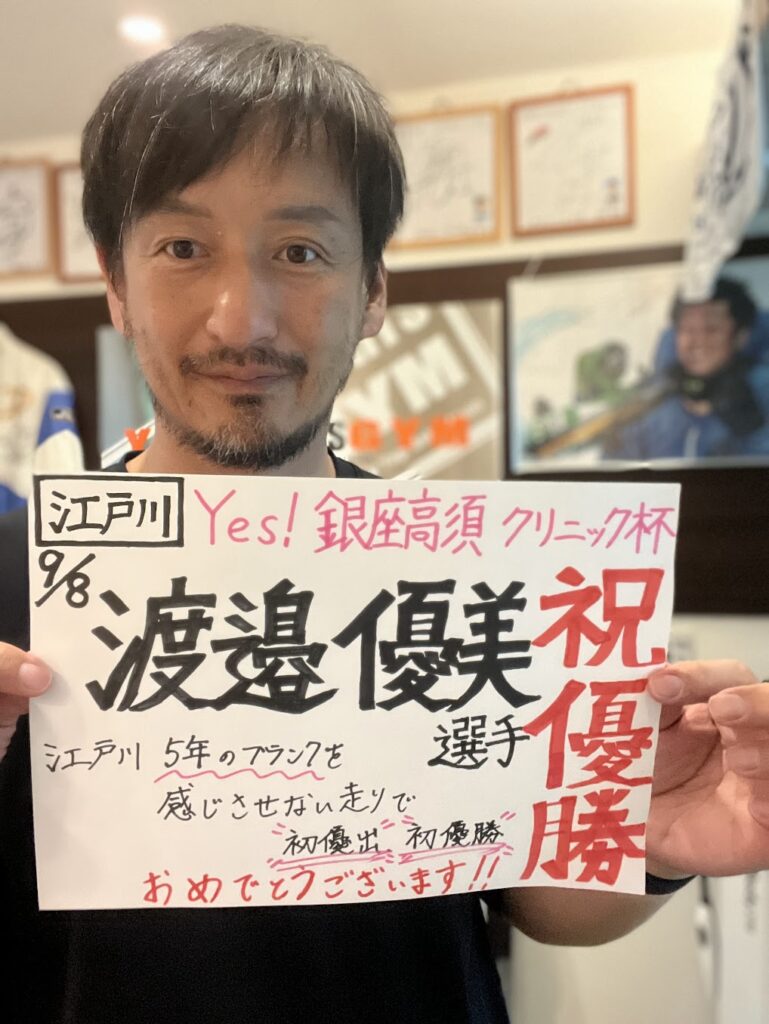 江戸川 Yes! 銀座高須クリニック杯
9/8
渡邉優美
選手
祝優勝
江戸川 5年のブランクを
感じさせない走りで
初優出 初優勝
おめでとうございます!!
GYM
SGYM